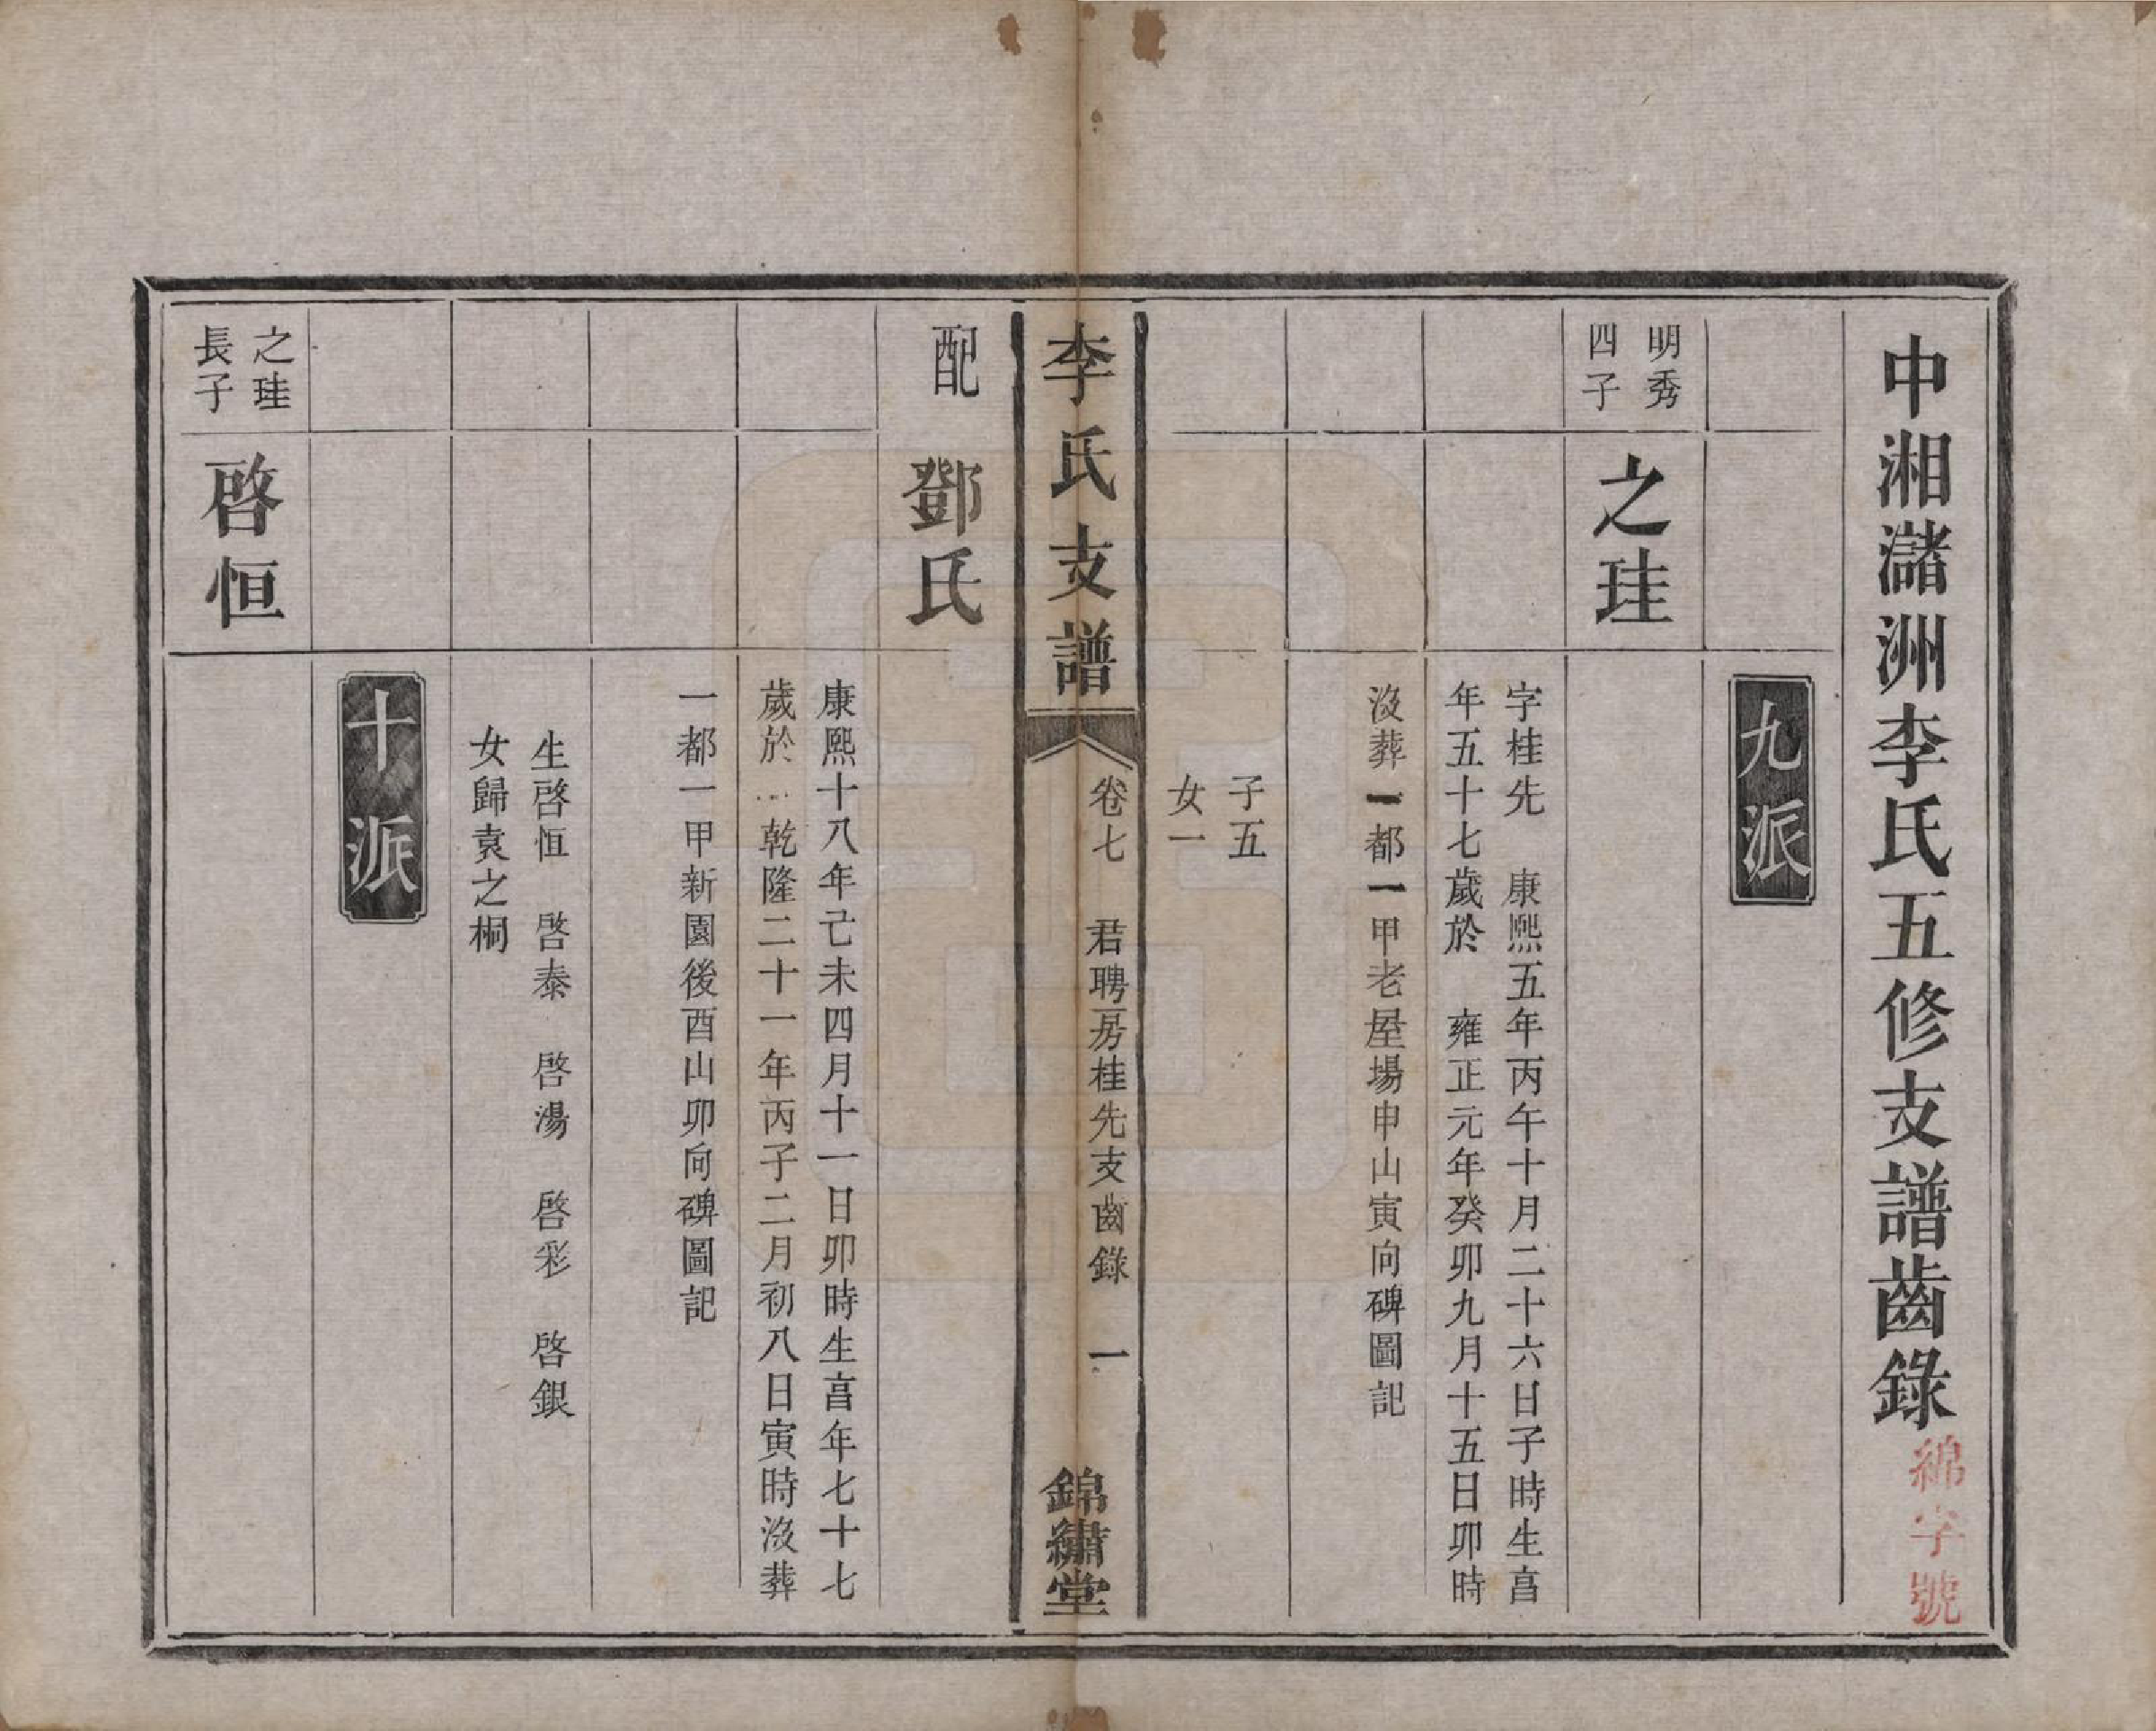 中湘瀦洲李氏五修支譜齒錄
綿字號
九派
明秀
四子
之珪
字桂先　康熙五年丙午十月二十六日子時生亯
年五十七歲於　雍正元年癸卯九月十五日卯時
沒葬一都一甲老屋場申山寅向碑圖記
子五
女一
李氏支譜
卷七　君聘房桂先支齒錄　一
錦繡堂
配
鄧氏
康熙十八年己未四月十一日卯時生亯年七十七
歲於　乾隆二十一年丙子二月初八日寅時沒葬
一都一甲新園後酉山卯向碑圖記
生啓恒　啓泰　啓湯　啓彩　啓銀
女歸袁之桐
十派
之珪
長子
啓恒